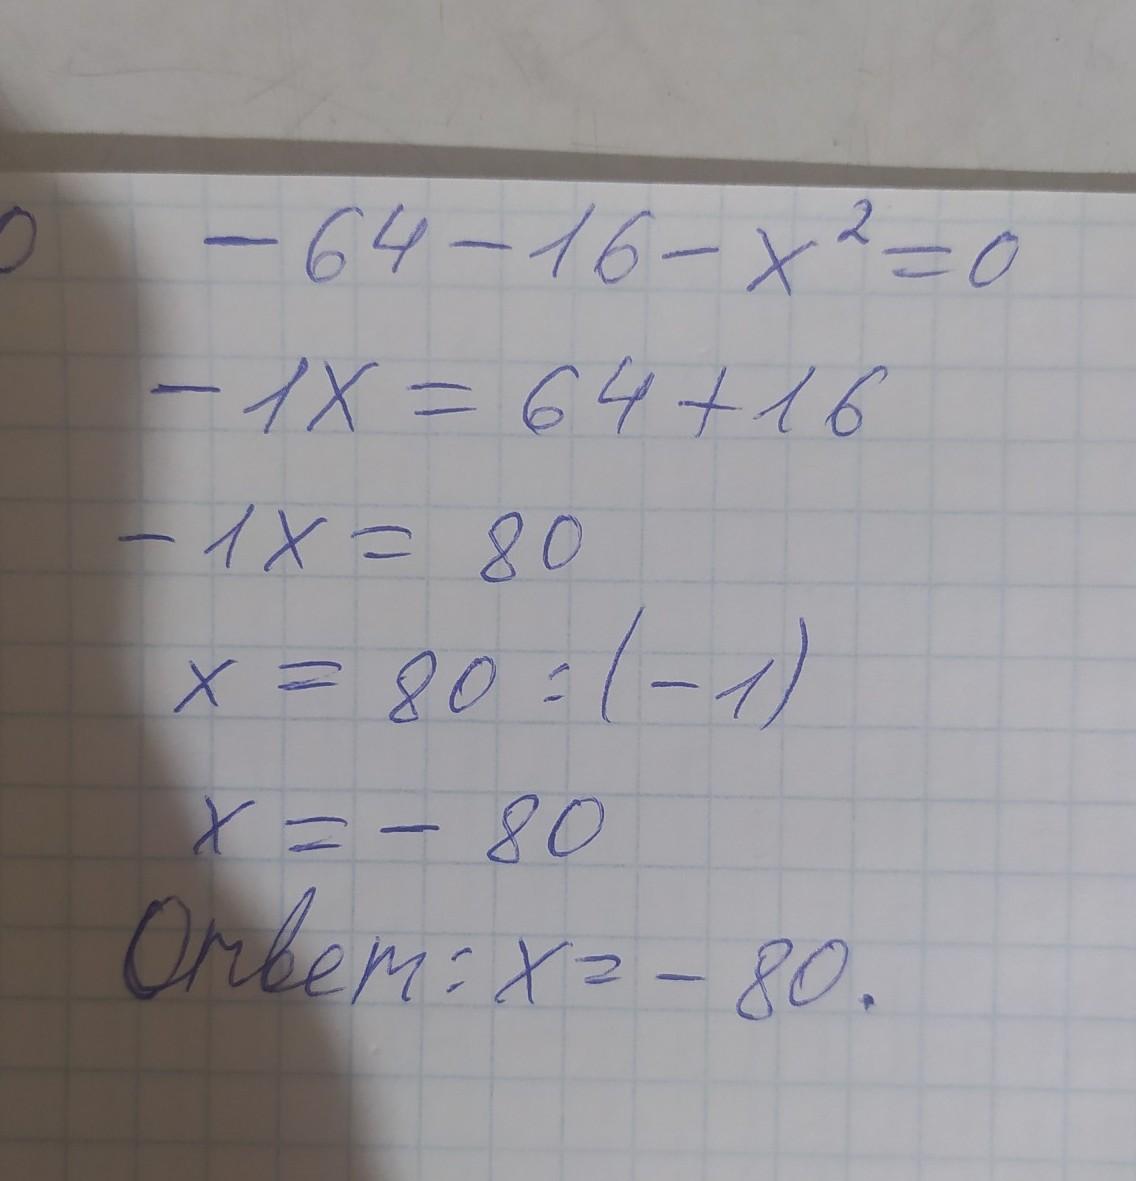 0 - 64 - 16 - x² = 0
- 1x = 64 + 16
- 1x = 80
x = 80 : (-1)
x = - 80
Ответ: x = - 80.